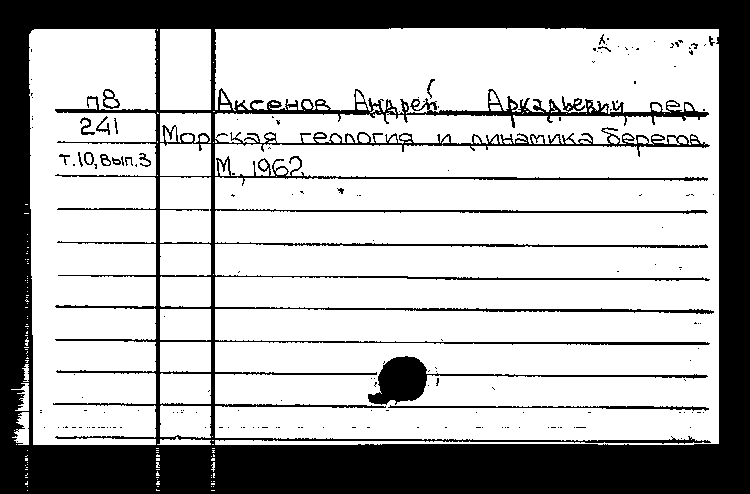 п8 Аксенов, Андрей Аркадьевич, ред.
241 Морская геология и динамика берегов.
т.10, вып.3 М., 1962